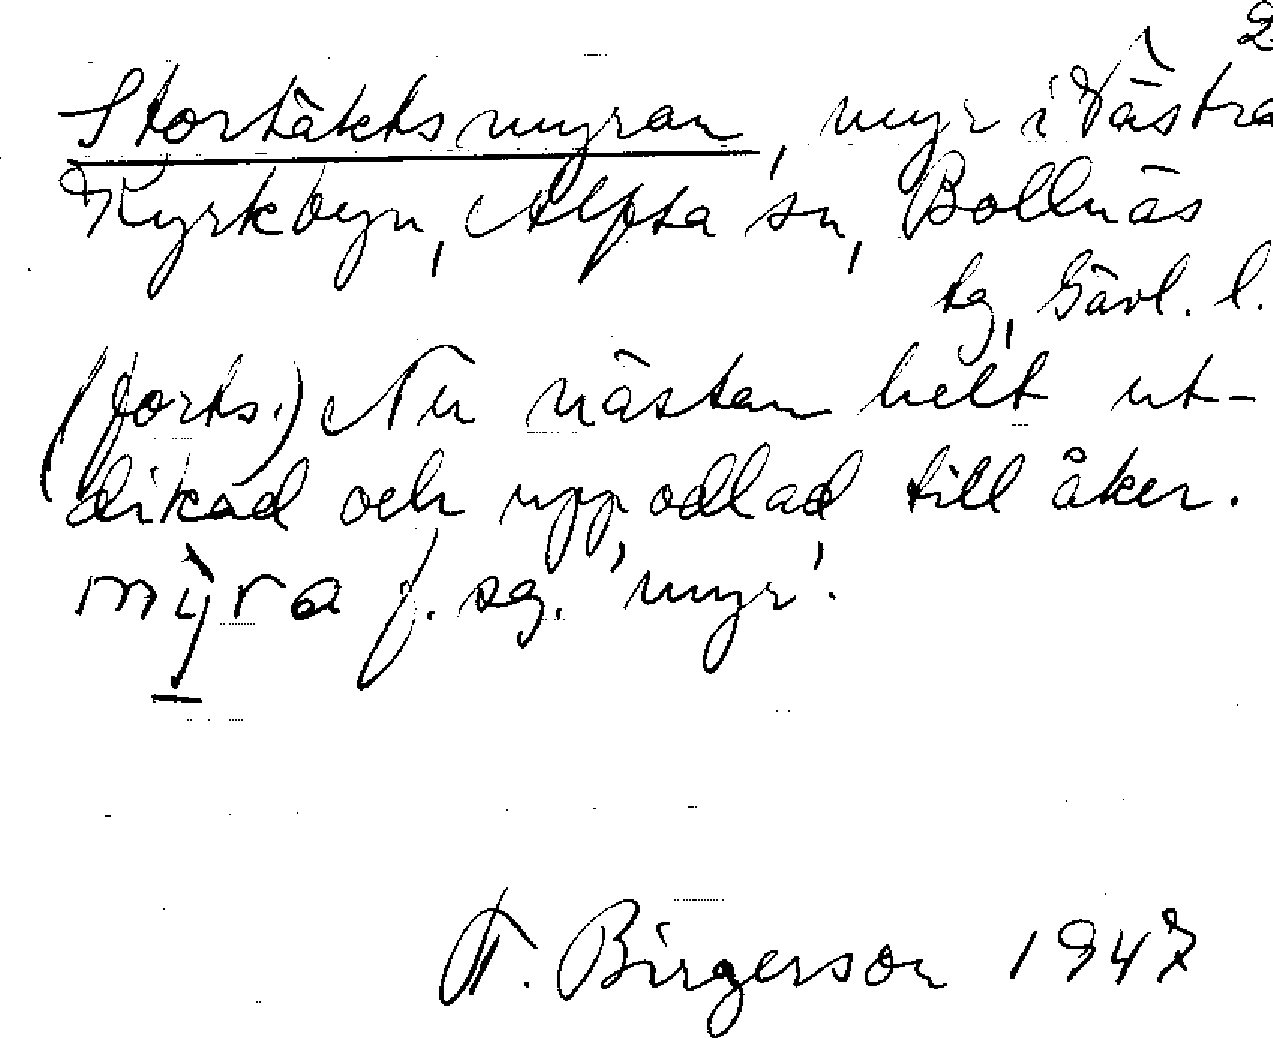 2
Stortäktsmyran, myr i Västra
Kyrkbyn, Alfta sn, Bollnäs
tg, Gävl. l.
(forts.) Nu nästan helt ut-
dikad och uppodlad till åker.
mỳra f. sg. 'myr'.
Birgerson 1947